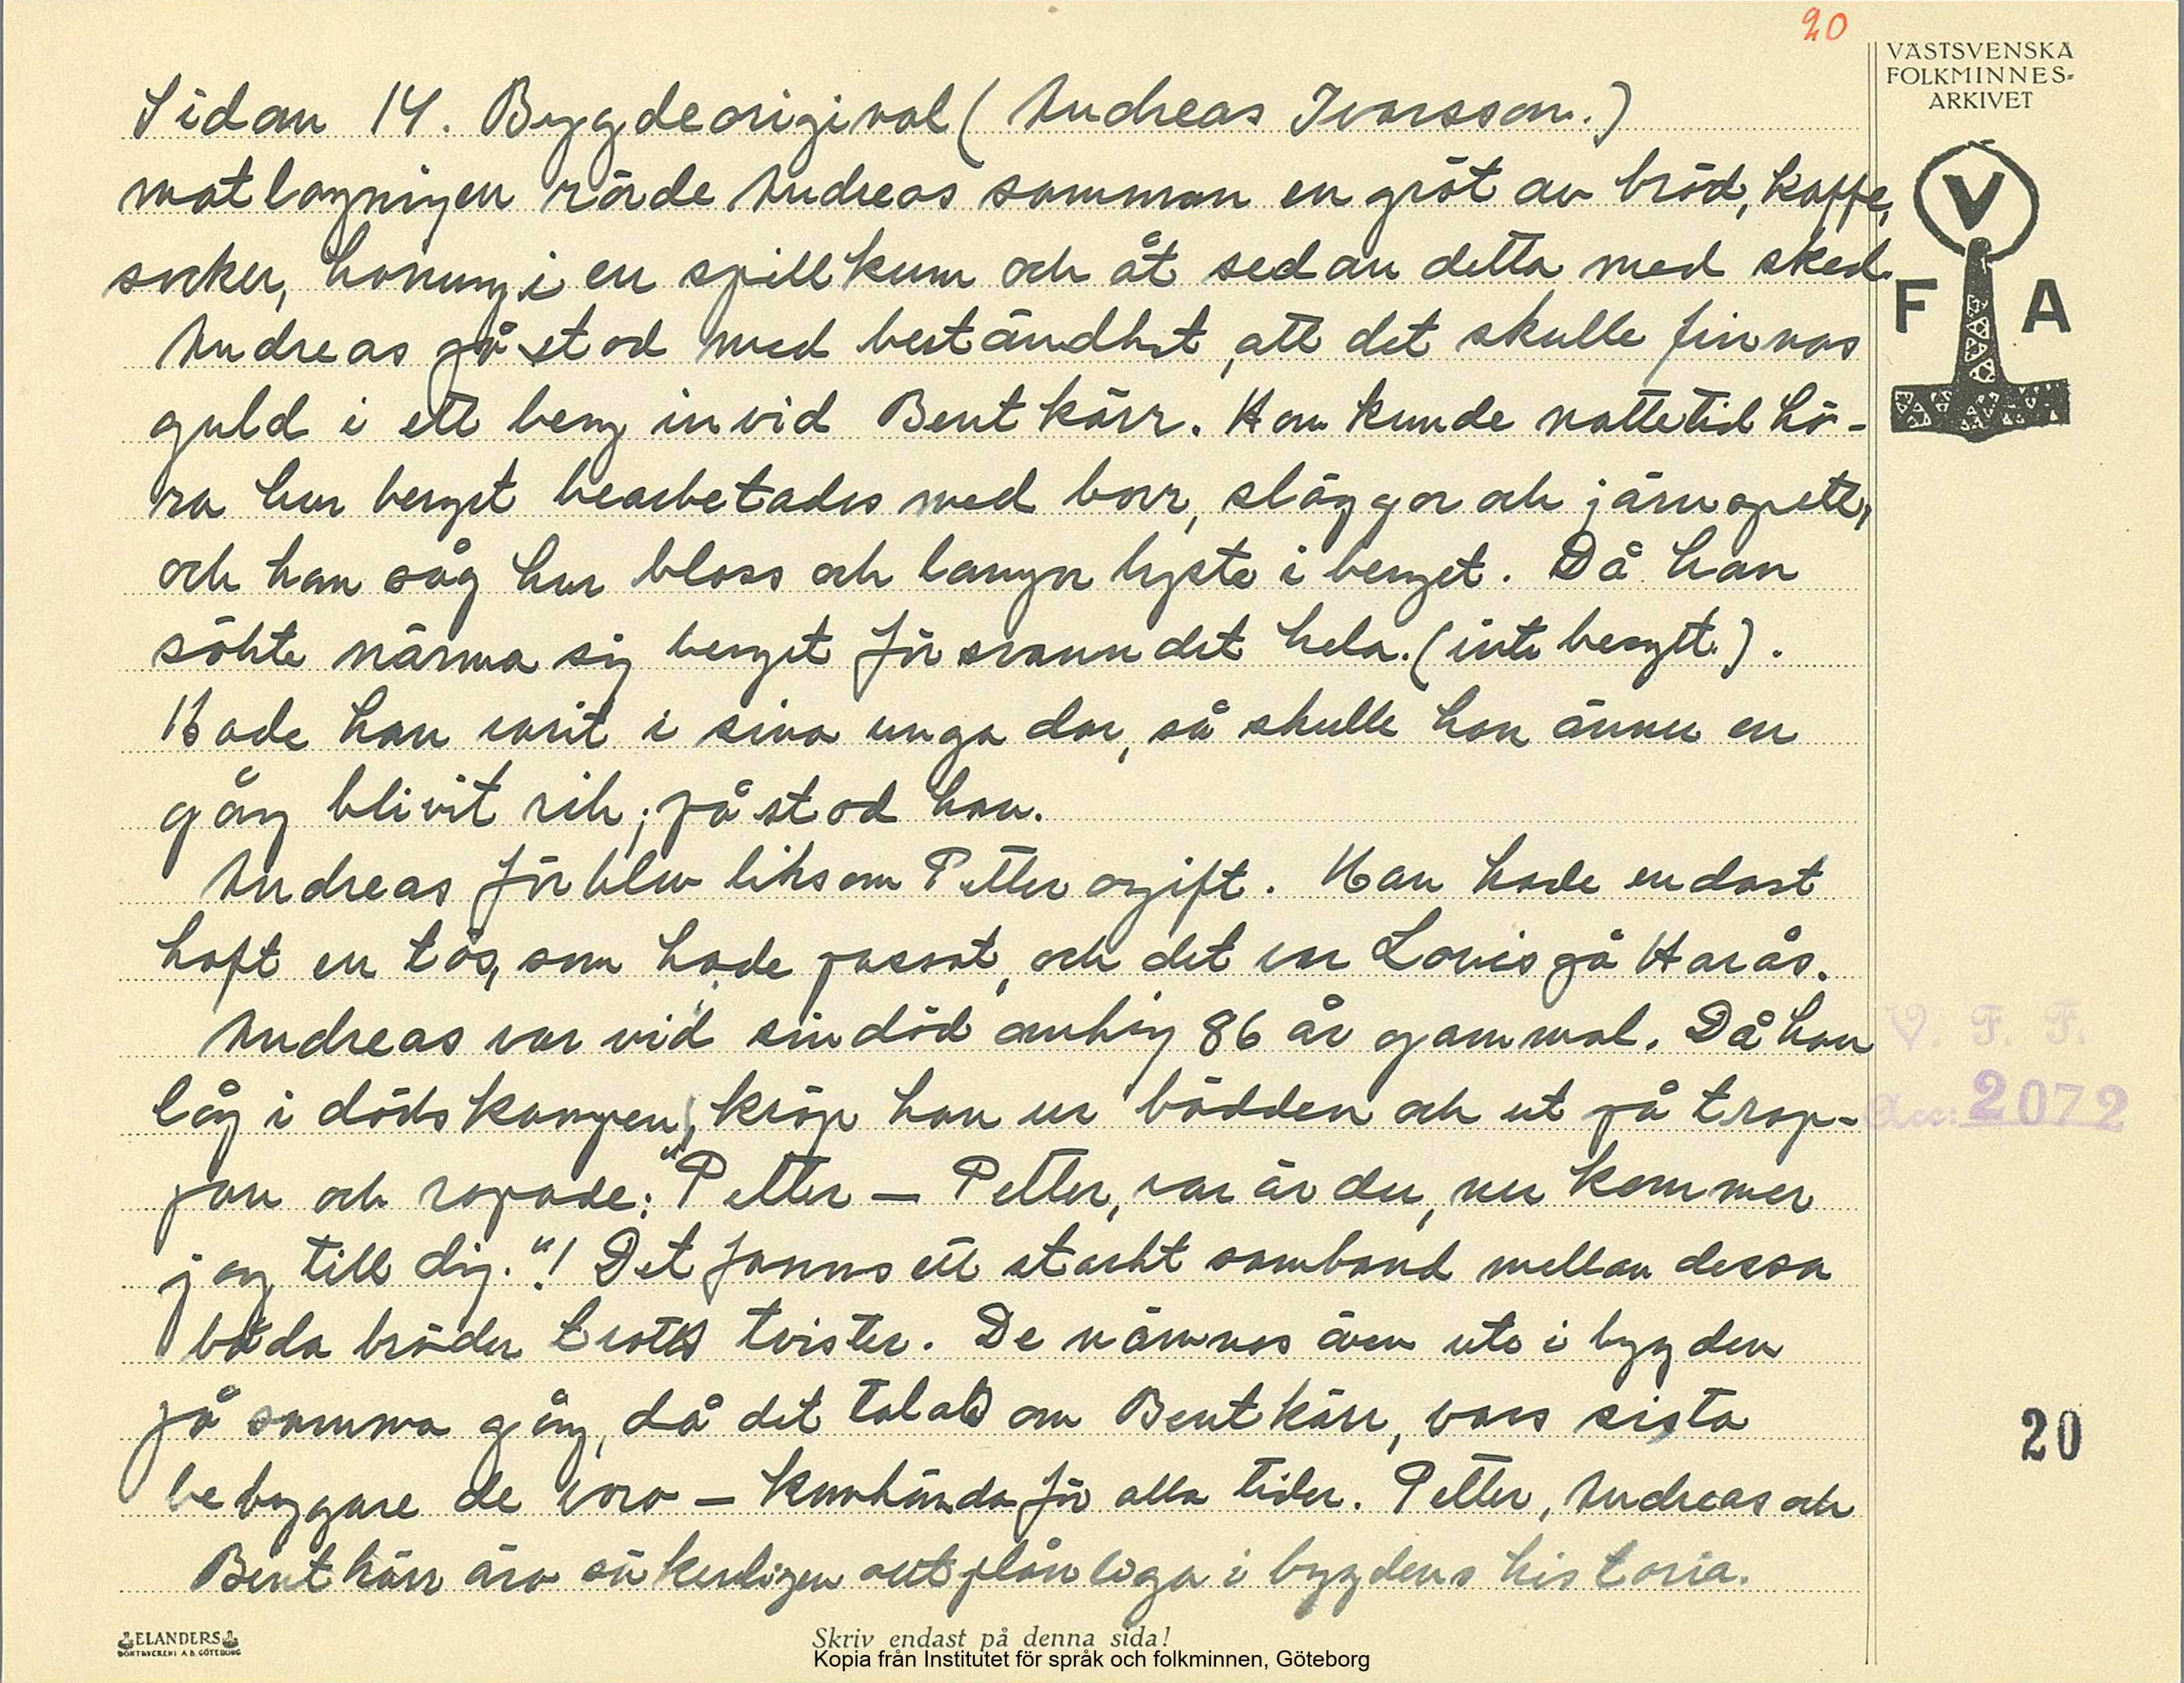 20
VÄSTSVENSKA
FOLKMINNES-
ARKIVET
V
F A
Sidan 14. Bygdeoriginal (Andreas Ivarsson.)
matlagningen rörde Andreas samman en gröt av bröd, kaffe,
socker, honung i en spillkum och åt sedan detta med sked.
Andreas påstod med bestämdhet, att det skulle finnas
guld i ett berg invid Bentkärr. Han kunde nattetid hö-
ra hur berget bearbetades med borr, släggor och järnspett,
och han såg hur bloss och lampor lyste i berget. Då han
sökte närma sig berget försvann det hela. (inte berget.).
Hade han varit i sina unga dar, så skulle han ännu en
gång blivit rik; påstod han.
Andreas förblev liksom Petter ogift. Han hade endast
haft en tös, som hade passat, och det var Lovis på Harås.
Andreas var vid sin död omkring 86 år gammal. Då han
låg i dödskampen, kröp han ur bädden och ut på trap-
pan och ropade: "Petter — Petter, var är du, nu kommer
jag till dig."! Det fanns ett starkt samband mellan dessa
båda bröder trots tvister. De nämnas även ute i bygden
på samma gång, då det talas om Bentkärr, vars sista
bebyggare de voro — kanhända för alla tider. Petter, Andreas och
Bentkärr äro säkerligen outplånliga i bygdens historia.
V. F. F.
Acc: 2072
20
ELANDERS
BOKTRYCKERI A.B. GÖTEBORG
Skriv endast på denna sida!
Kopia från Institutet för språk och folkminnen, Göteborg